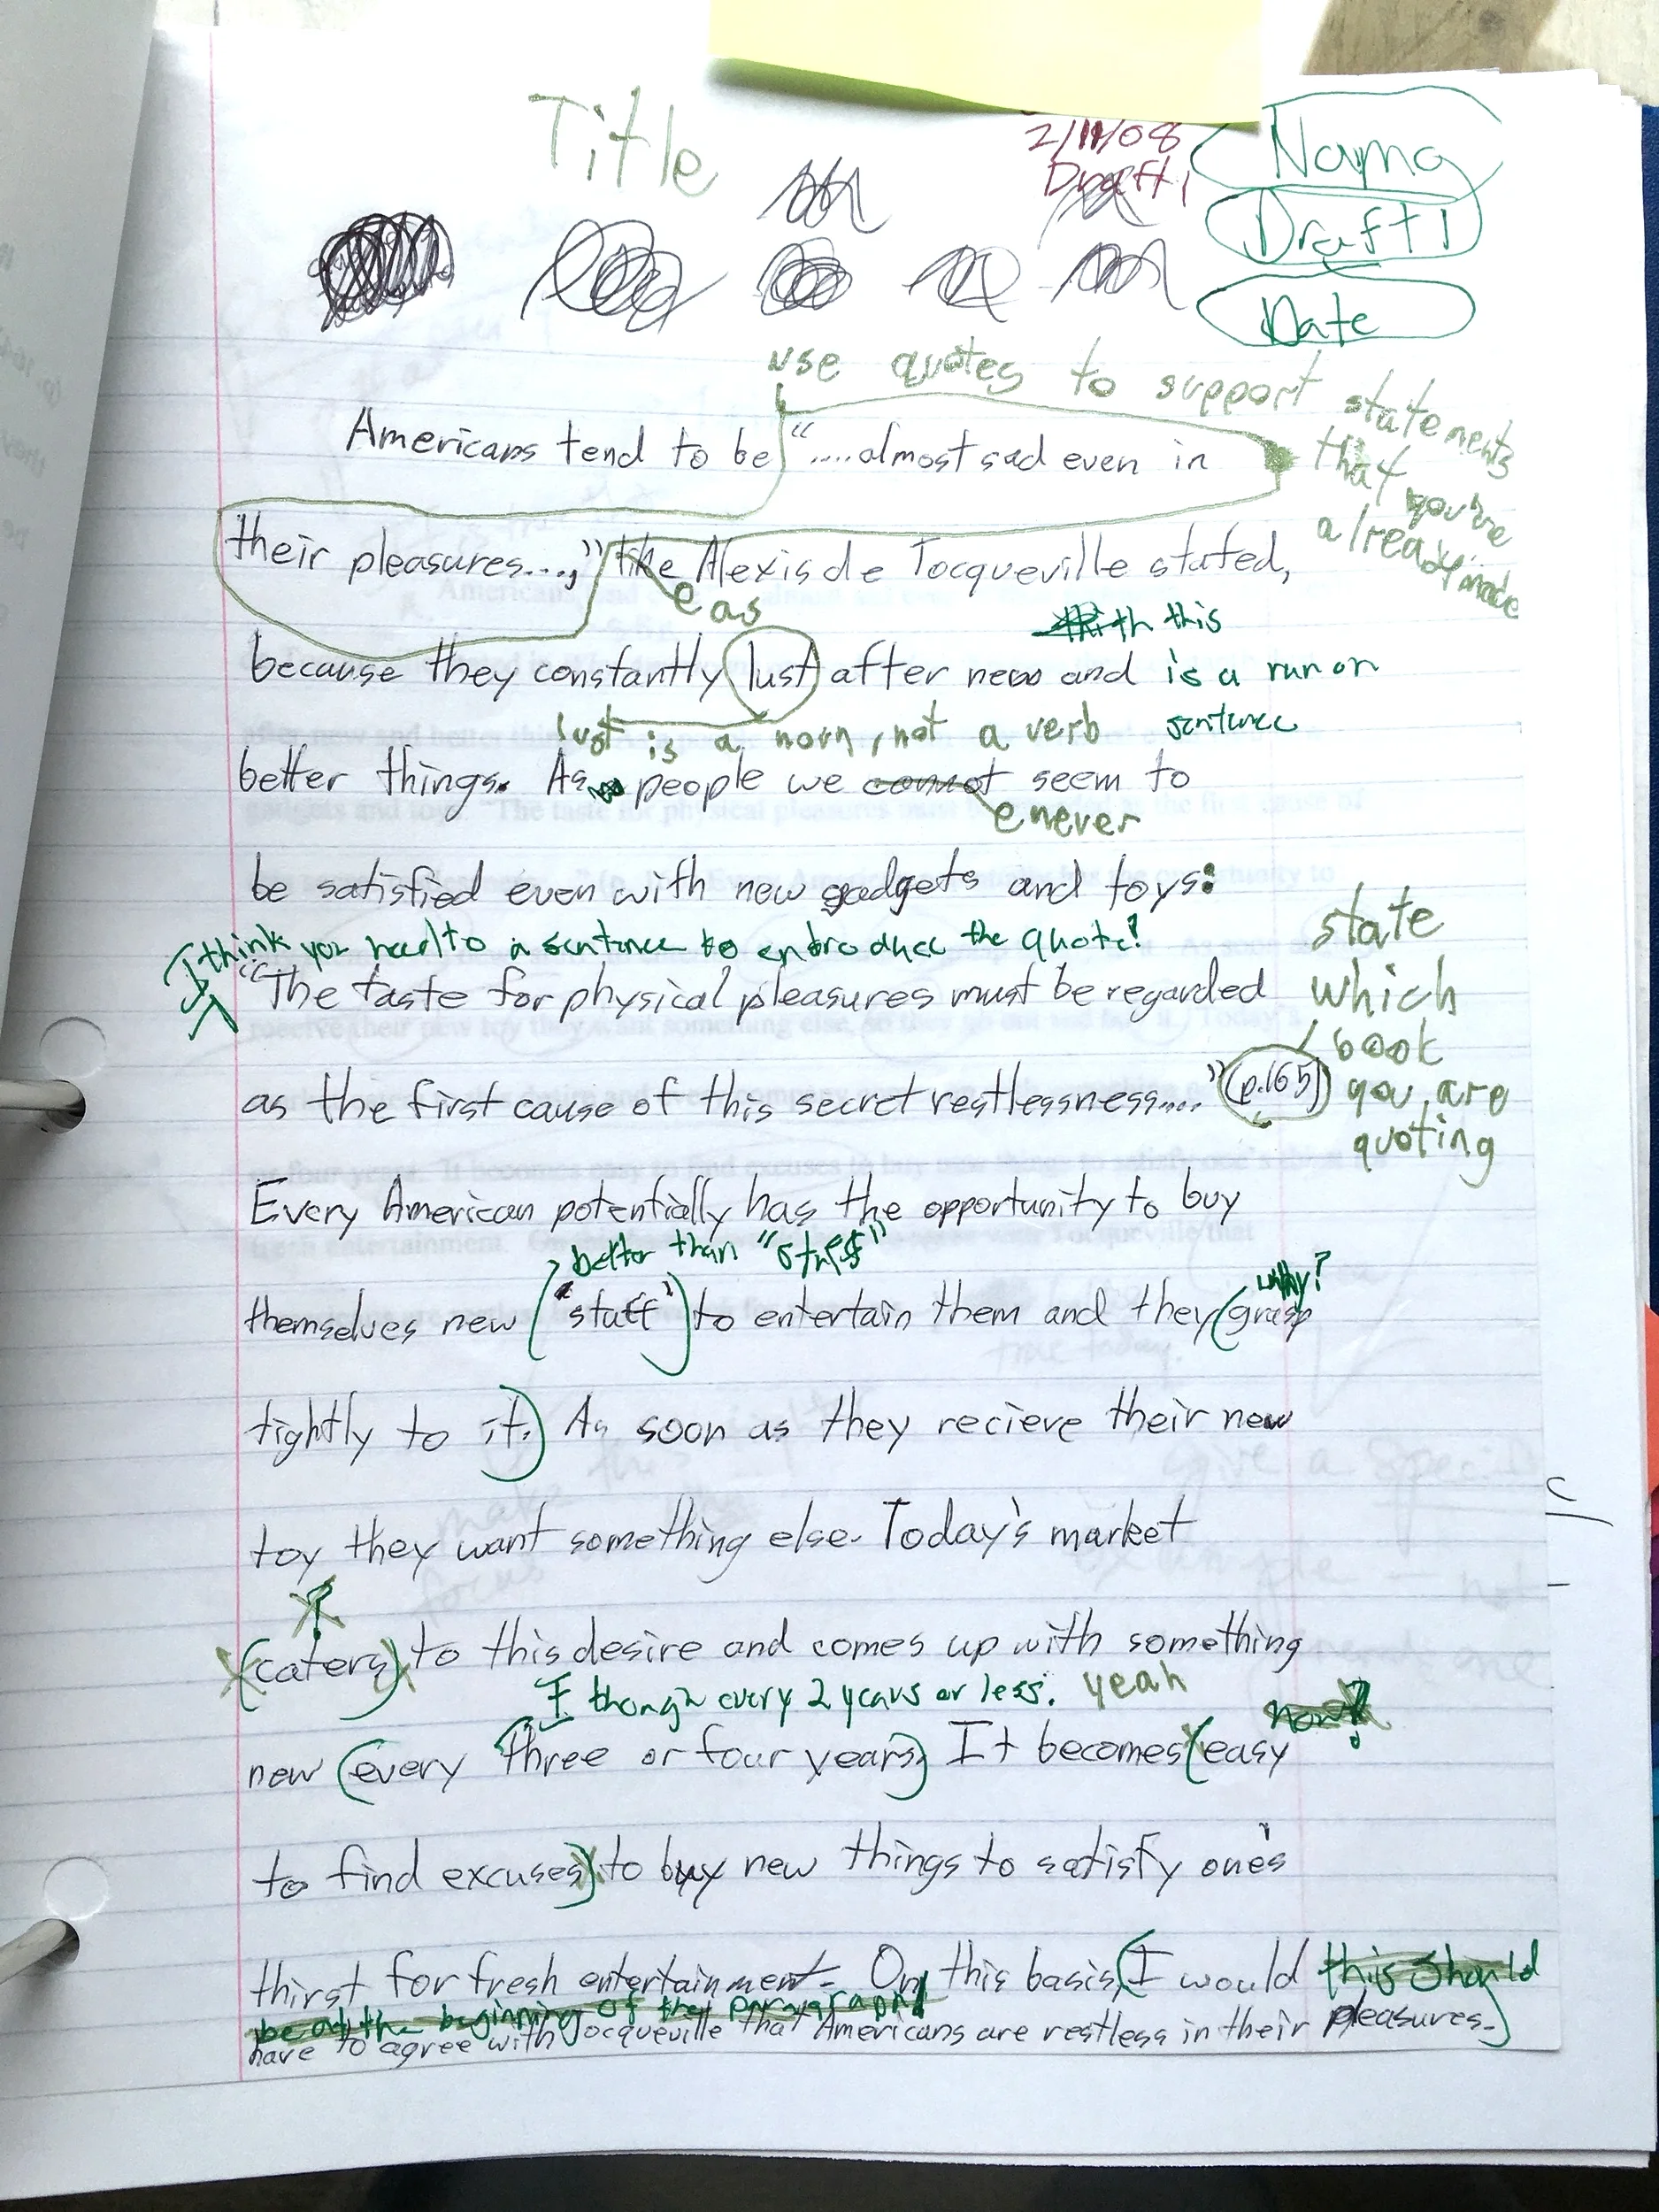 Title
2/11/08
Draft 1
Name
Draft 1
Date
use quotes to support statements
that you're
already made
Americans tend to be "....almost sad even in
their pleasures...," like Alexis de Tocqueville stated,
as
this
because they constantly lust after new and is a run on
lust is a noun, not a verb sentence
better things. As people we cannot seem to
never
be satisfied even with new gadgets and toys:
I think you need to a sentence to entroduce the quote?
state
"The taste for physical pleasures must be regarded
which
book
as the first cause of this secret restlessness...." (p.165)
you are
quoting
Every American potentially has the opportunity to buy
better than "stuff"
why?
themselves new "stuff" to entertain them and they grasp
tightly to it. As soon as they recieve their new
toy they want something else. Today's market
?
caters to this desire and comes up with something
I though every 2 years or less. yeah
how?
new every three or four years. It becomes easy
to find excuses to buy new things to satisfy one's
thirst for fresh entertainment. On this basis, I would this should
be at the beginning of the paragraph
have to agree with Tocqueville that Americans are restless in their pleasures.